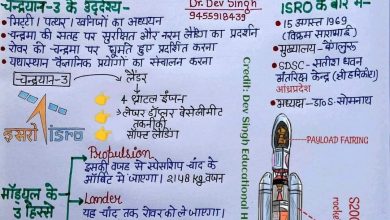 चन्द्रयान-3 के उद्देश्य-
- मिट्टी। पत्थर। खनिजों का अध्ययन
- चन्द्रमा की सतह पर सुरक्षित और नरम लैंडिंग का प्रदर्शन
- रोवर को चन्द्रमा पर घूमते हुए प्रदर्शित करना
- यथास्थान वैज्ञानिक प्रयोगों का संचालन करना
Dr. Dev Singh
9455918439
ISRO के बारे में-
15 अगस्त 1969
(विक्रम साराभाई)
मुख्यालय- बेंगलुरू
SDSC- सतीश धवन
अंतरिक्ष केन्द्र (श्री हरिकोटा)
आंध्रप्रदेश
अध्यक्ष- डा० S. सोमनाथ
चन्द्रयान-3
लैंडर
4 थ्रॉटल इंजन
लेजर डॉप्लर वेलोसीमीटर
तकनीकी
सॉफ्ट लैंडिंग
इसरो isro
Credit: Dev Singh Educational H
PAYLOAD FAIRING
S200
मॉड्यूल के
3 हिस्से
Propulsion
इसकी वजह से स्पेसशिप चाँद के
ऑर्बिट में जाएगा। 2148 kg वजन
Lander
यह चाँद तक रोवर को ले जाएगा।